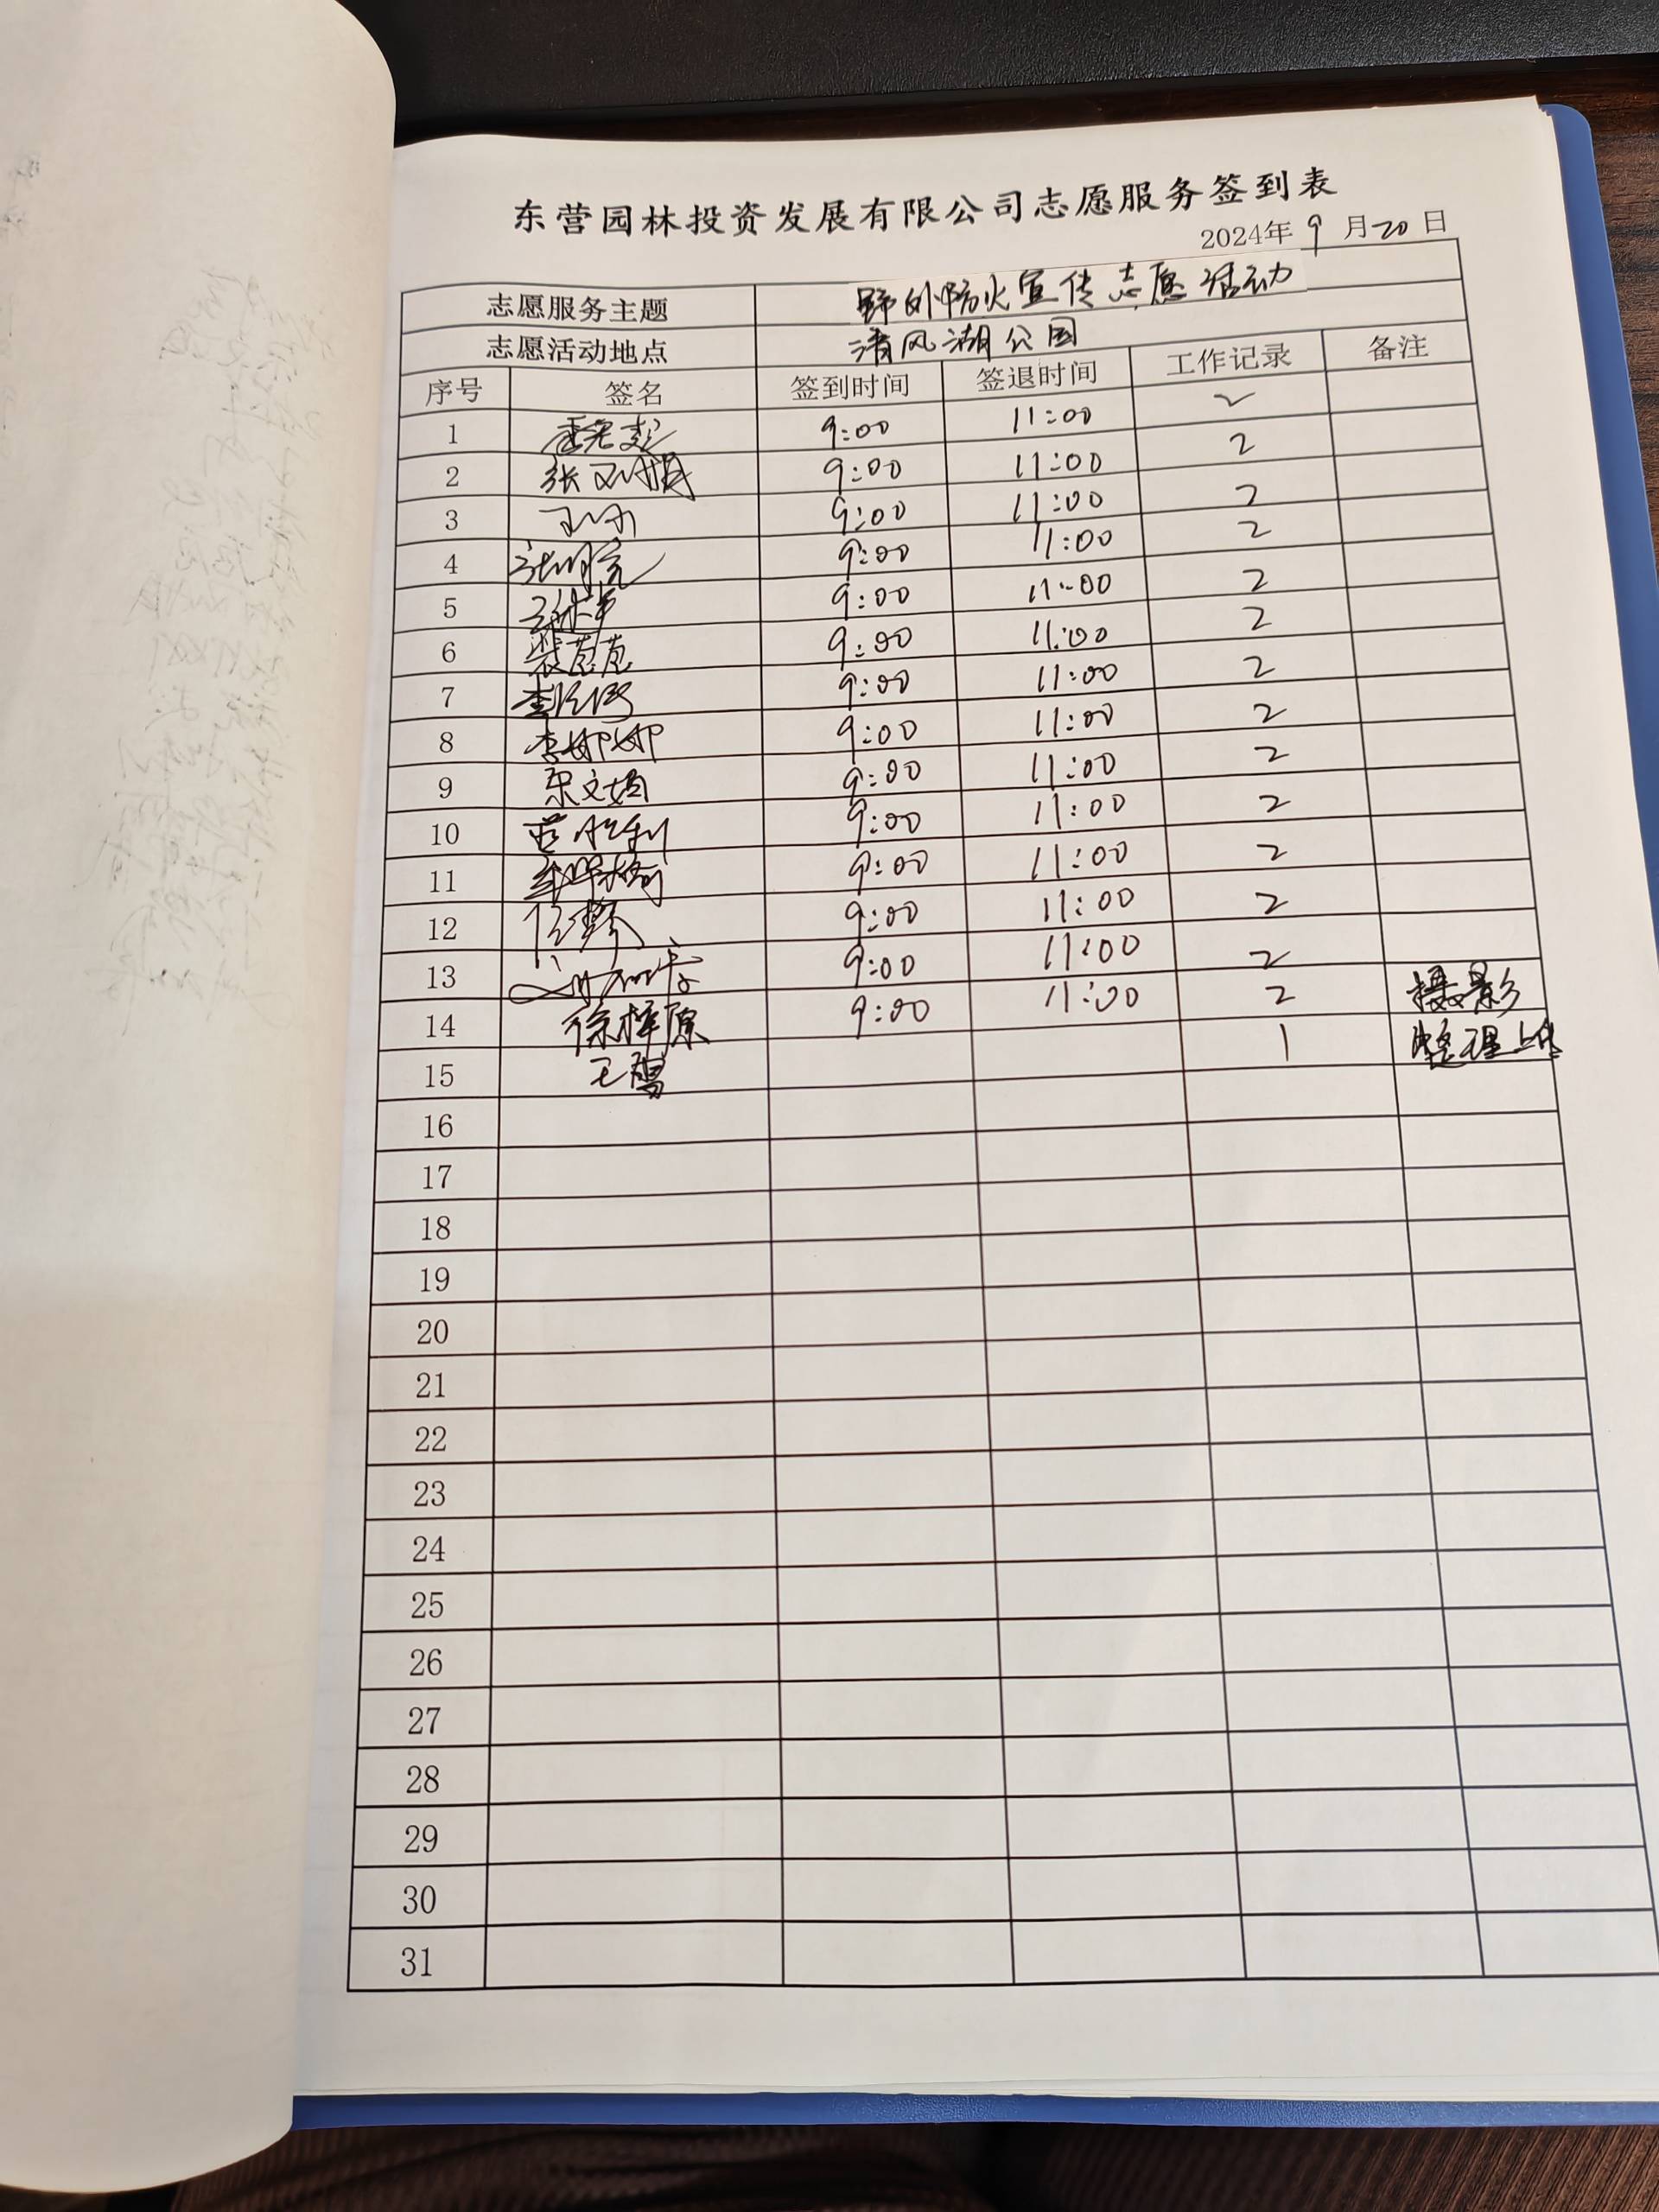 东营园林投资发展有限公司志愿服务签到表
2024年 9 月 20 日
志愿服务主题 野外防火宣传志愿活动
志愿活动地点 清风湖公园
序号 签名 签到时间 签退时间 工作记录 备注
1 9:00 11:00 2
2 张 9:00 11:00 2
3 9:00 11:00 2
4 9:00 11:00 2
5 9:00 11:00 2
6 裴苗苗 9:00 11:00 2
7 李 9:00 11:00 2
8 李娜娜 9:00 11:00 2
9 宋文娟 9:00 11:00 2
10 9:00 11:00 2
11 9:00 11:00 2
12 任 9:00 11:00 2
13 9:00 11:00 2
14 徐梓原 9:00 11:00 2 摄影
15 王 1 整理上传
16
17
18
19
20
21
22
23
24
25
26
27
28
29
30
31